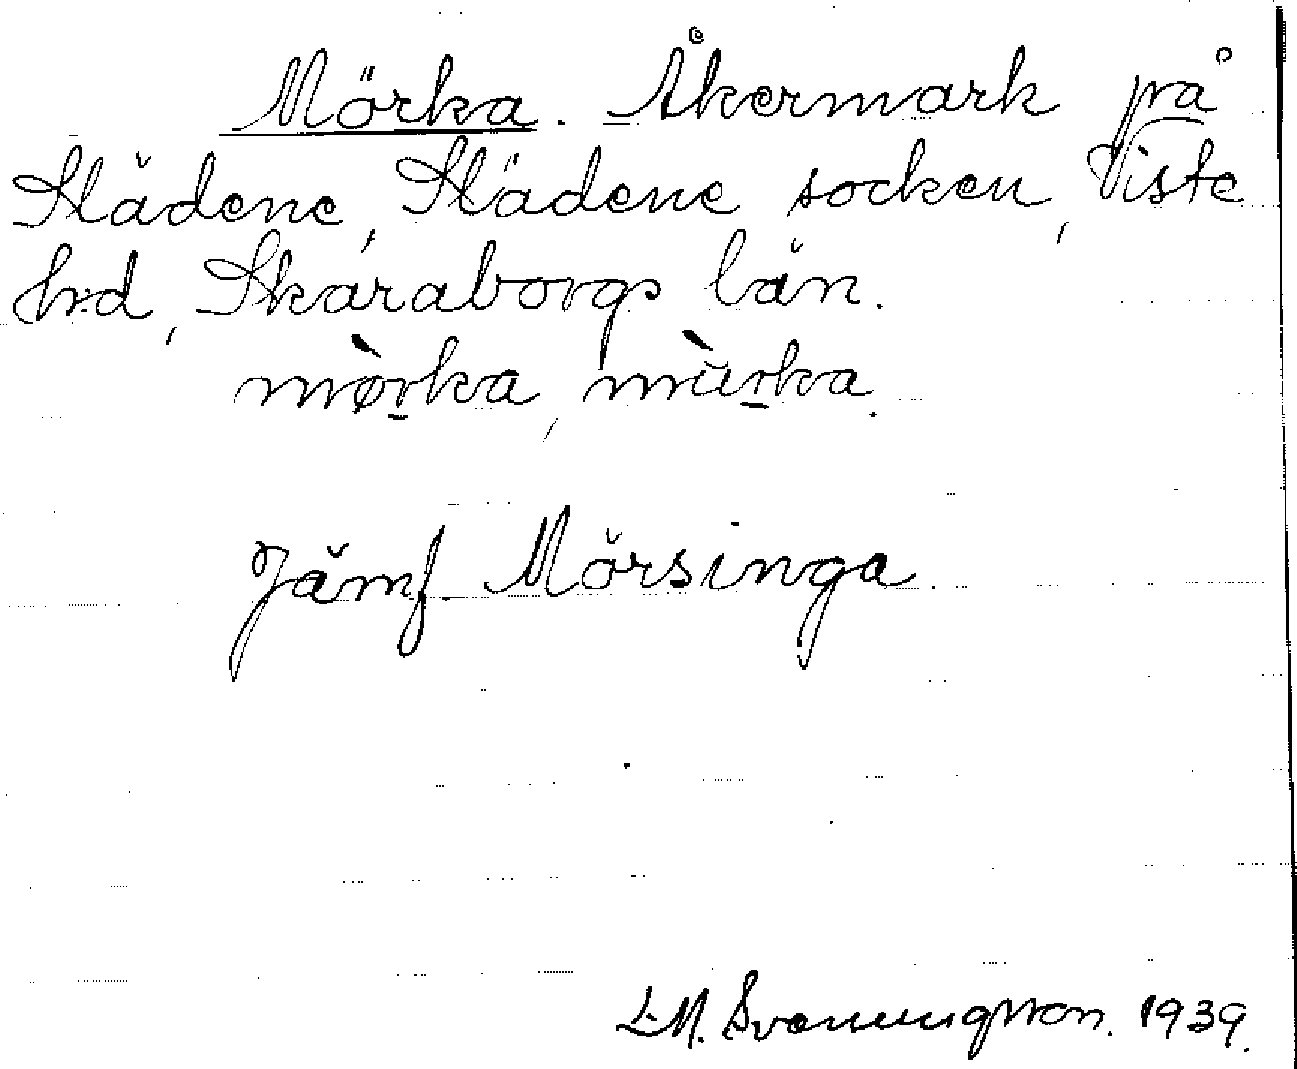 Mörka. Åkermark på
Slädene, Slädene socken, Viste
h:d, Skaraborgs län.
mø̀rka, mùrka.
Jämf Mörsinga.
L.M. Svanungsson. 1939.